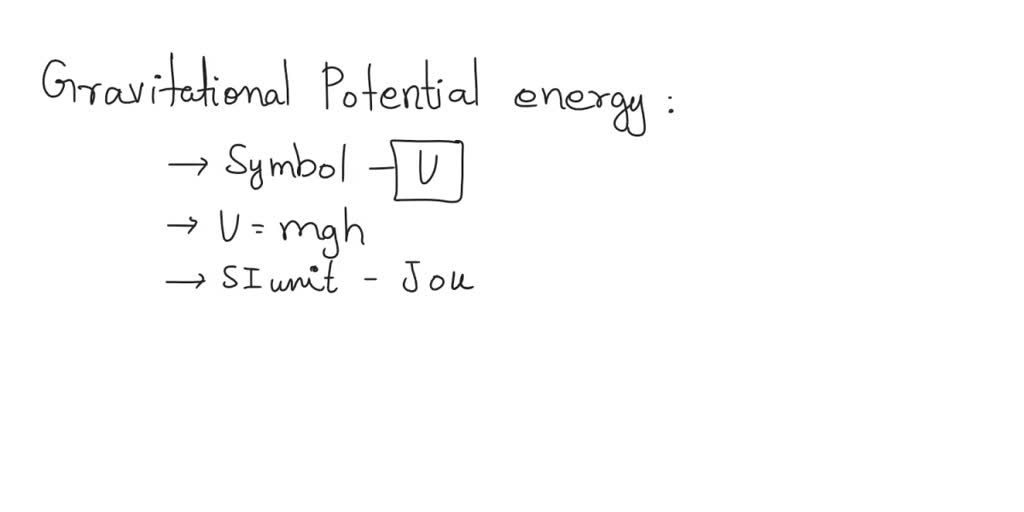 Gravitational Potential energy :
→ Symbol - U
→ U = mgh
→ SI unit - Jou